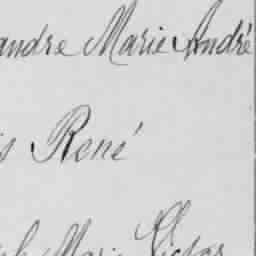 andre Marie André
s René
ph Marie Victor